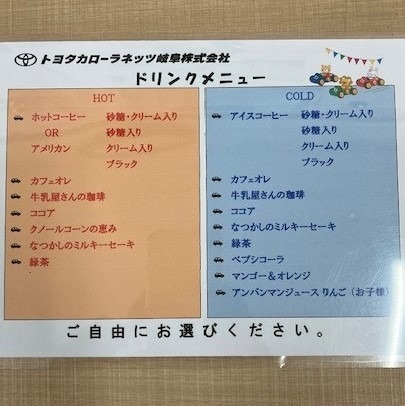 トヨタカローラネッツ岐阜株式会社
ドリンクメニュー
HOT
ホットコーヒー 砂糖・クリーム入り
OR 砂糖入り
アメリカン クリーム入り
ブラック
カフェオレ
牛乳屋さんの珈琲
ココア
クノールコーンの恵み
なつかしのミルキーセーキ
緑茶
COLD
アイスコーヒー 砂糖・クリーム入り
砂糖入り
クリーム入り
ブラック
カフェオレ
牛乳屋さんの珈琲
ココア
なつかしのミルキーセーキ
緑茶
ペプシコーラ
マンゴー＆オレンジ
アンパンマンジュース りんご（お子様）
ご自由にお選びください。